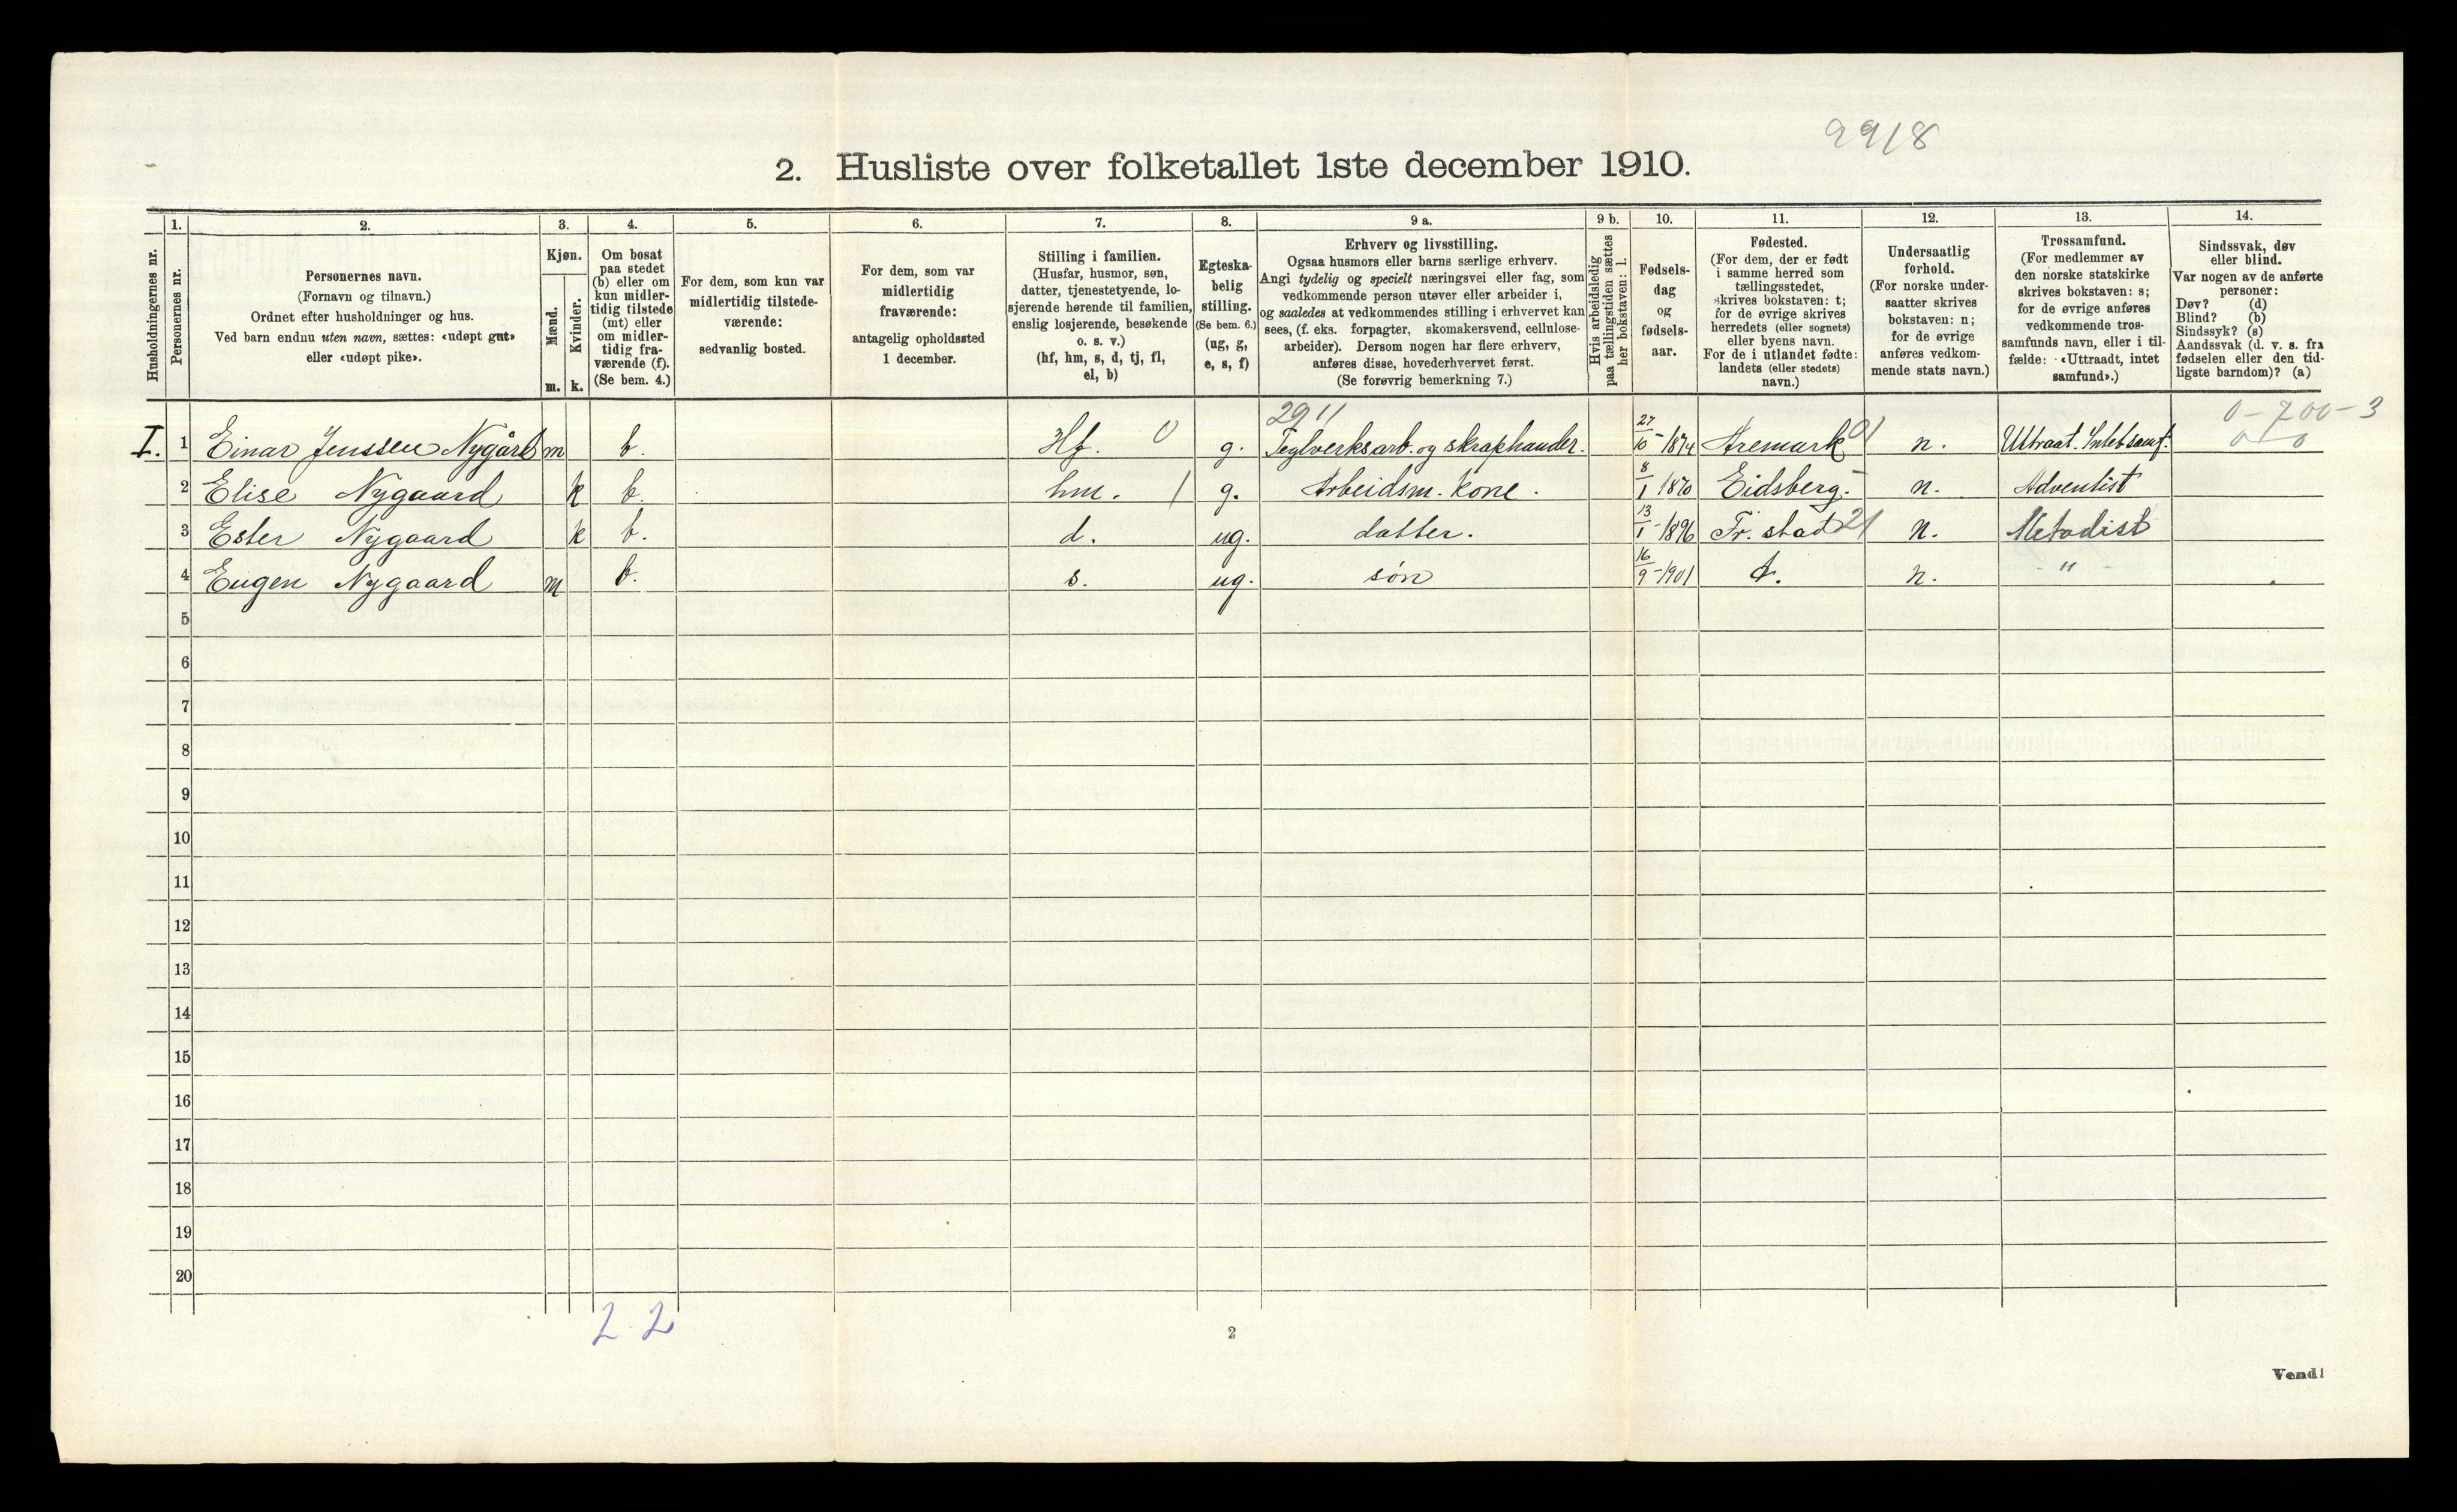 9918
2. Husliste over folketallet 1ste december 1910.
Husholdningernes nr.
1.
Personernes nr.
2.
Personernes navn.
(Fornavn og tilnavn.)
Ordnet efter husholdninger og hus.
Ved barn endnu uten navn, sættes: «udøpt gut»
eller «udøpt pike».
3.
Kjøn.
Mænd.
m.
Kvinder.
k.
4.
Om bosat
paa stedet
(b) eller om
kun midler-
tidig tilstede
(mt) eller
om midler-
tidig fra-
værende (f).
(Se bem. 4.)
5.
For dem, som kun var
midlertidig tilstede-
værende:
sedvanlig bosted.
6.
For dem, som var
midlertidig
fraværende:
antagelig opholdssted
1 december.
7.
Stilling i familien.
(Husfar, husmor, søn,
datter, tjenestetyende, lo-
sjerende hørende til familien,
enslig losjerende, besøkende
o. s. v.)
(hf, hm, s, d, tj, fl,
el, b)
8.
Egteska-
belig
stilling.
(Se bem. 6.)
(ug, g,
e, s, f)
9 a.
Erhverv og livsstilling.
Ogsaa husmors eller barns særlige erhverv.
Angi tydelig og specielt næringsvei eller fag, som
vedkommende person utøver eller arbeider i,
og saaledes at vedkommendes stilling i erhvervet kan
sees, (f. eks. forpagter, skomakersvend, cellulose-
arbeider). Dersom nogen har flere erhverv,
anføres disse, hovederhvervet først.
(Se forøvrig bemerkning 7.)
9 b.
Hvis arbeidsledig
paa tællingstiden sættes
her bokstaven: l.
10.
Fødsels-
dag
og
fødsels-
aar.
11.
Fødested.
(For dem, der er født
i samme herred som
tællingsstedet,
skrives bokstaven: t;
for de øvrige skrives
herredets (eller sognets)
eller byens navn.
For de i utlandet fødte:
landets (eller stedets)
navn.)
12.
Undersaatlig
forhold.
(For norske under-
saatter skrives
bokstaven: n;
for de øvrige
anføres vedkom-
mende stats navn.)
13.
Trossamfund.
(For medlemmer av
den norske statskirke
skrives bokstaven: s;
for de øvrige anføres
vedkommende tros-
samfunds navn, eller i til-
fælde: «Uttraadt, intet
samfund».)
14.
Sindssvak, døv
eller blind.
Var nogen av de anførte
personer:
Døv? (d)
Blind? (b)
Sindssyk? (s)
Aandssvak (d. v. s. fra
fødselen eller den tid-
ligste barndom)? (a)
2911 0-700-3
I. 1 Einar Jenssen Nygård m b. Hf. 0 g. Teglverksarb. og skraphandler. 27/10-1874 Aremark 01 n. Uttraat. Intet samf. 0-0
2 Elise Nygaard k b. hm. 1 g. Arbeidsm. kone. 8/1 1870 Eidsberg.- n. Adventist
3 Ester Nygaard k b. d. ug. datter. 13/1-1896 Fr. stad 21 n. Metodist
4 Eugen Nygaard m b. s. ug. søn 16/9-1901 t. n. - " -
5
6
7
8
9
10
11
12
13
14
15
16
17
18
19
20
2 2
2
Vend!